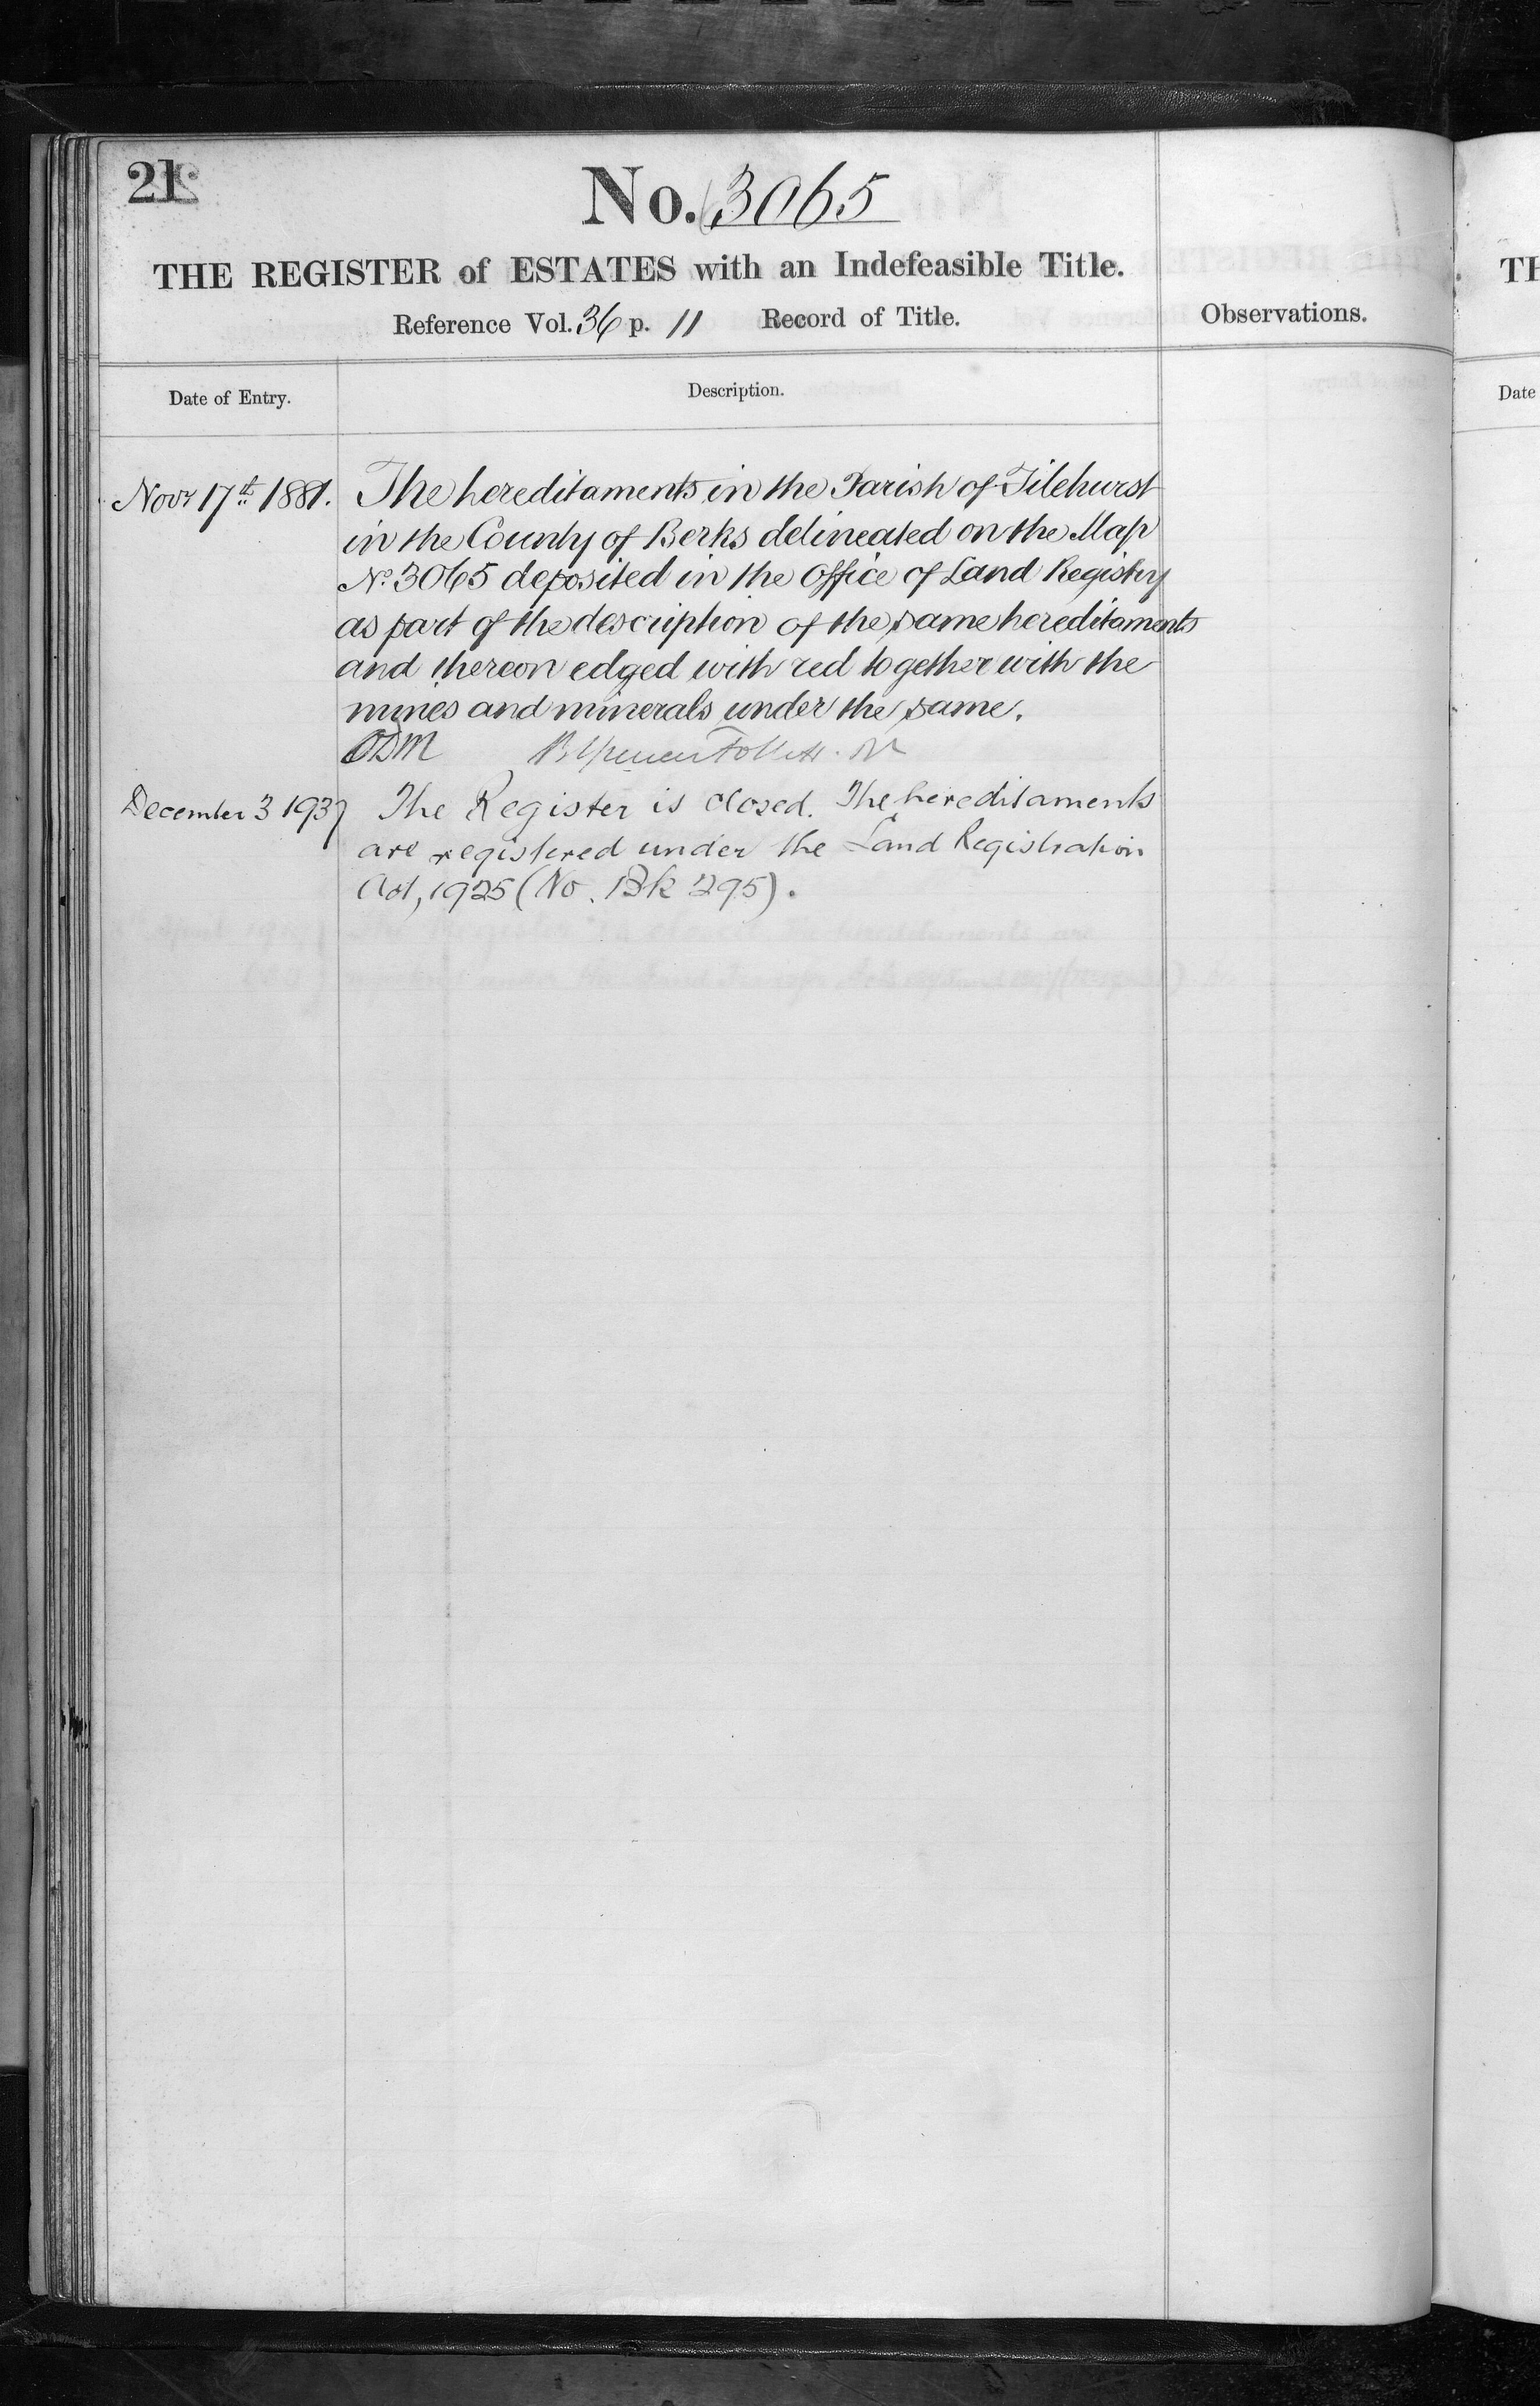 21
No. 3065
THE REGISTER of ESTATES with an Indefeasible Title.
Reference Vol. 36 p. 11 Record of Title.
Observations.
Date of Entry.
Description.
Novr 17th 1881.
The hereditaments in the Parish of Tilehurst
in the County of Berks delineated on the Map
No. 3065 deposited in the Office of Land Registry
as part of the description of the same hereditaments
and thereon edged with red together with the
mines and minerals under the same.
December 3 1937
The Register is closed. The hereditaments
are registered under the Land Registration
Act, 1925 (No. Bk 295).
TH
Date